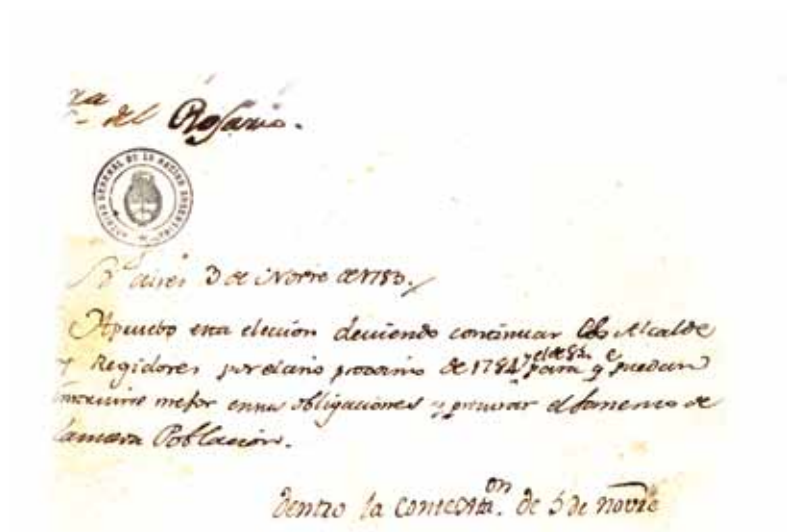 ra
del Rosario.
ARCHIVO GENERAL DE LA NACION ARGENTINA
Bs. aires 3 de Novre de 1783.
Apruebo esta eleccion deviendo continuar los Alcalde
y Regidores por el año proximo de 1784 y el de 85. para q.e puedan
instruirse mejor en sus obligaciones y procurar el fomento de
la nueva Poblacion.
dentro la contestn. de 5 de Novre